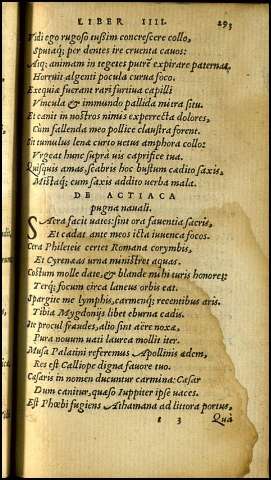 LIBER IIII. 293
Vidi ego rugoso tussim concrescere collo,
Sputaq; per dentes ire cruenta cauos:
Atq; animam in tegetes putrē expirare paternas,
Horruit algenti pocula curua foco.
Exequiæ fuerant rari furtiua capilli
Vincula & immundo pallida mitra situ.
Et canit in nostros nimus experrecta dolores,
Cum fallenda meo pollice claustra forent.
Sit tumulus lenæ curto uetus amphora collo:
Vrgeat hunc supra uis caprifice tua.
Quisquis amas, scabris hoc bustum cædito saxis,
Mistaq; cum saxis addito uerba mala.
DE ACTIACA
pugna nauali.
SAcra facit uates: sint ora fauentia sacris,
Et cadat ante meos icta iuuenca focos.
Cera Philetæis certet Romana corymbis,
Et Cyrenæas urna ministret aquas.
Costum molle date, & blandi mihi turis honores:
Terq; focum circa laneus orbis eat.
Spargite me lymphis, carmenq; recentibus aris.
Tibia Mygdonijs libet eburna cadis.
Ite procul fraudes, alio sint aëre noxæ,
Pura nouum uati laurea mollit iter.
Musa Palatini referemus Apollinis ædem,
Res est Calliope digna fauore tuo.
Cæsaris in nomen ducuntur carmina: Cæsar
Dum canitur, quæso Iuppiter ipse uaces.
Est Phœbi fugiens Athamana ad littora portus,
Quà